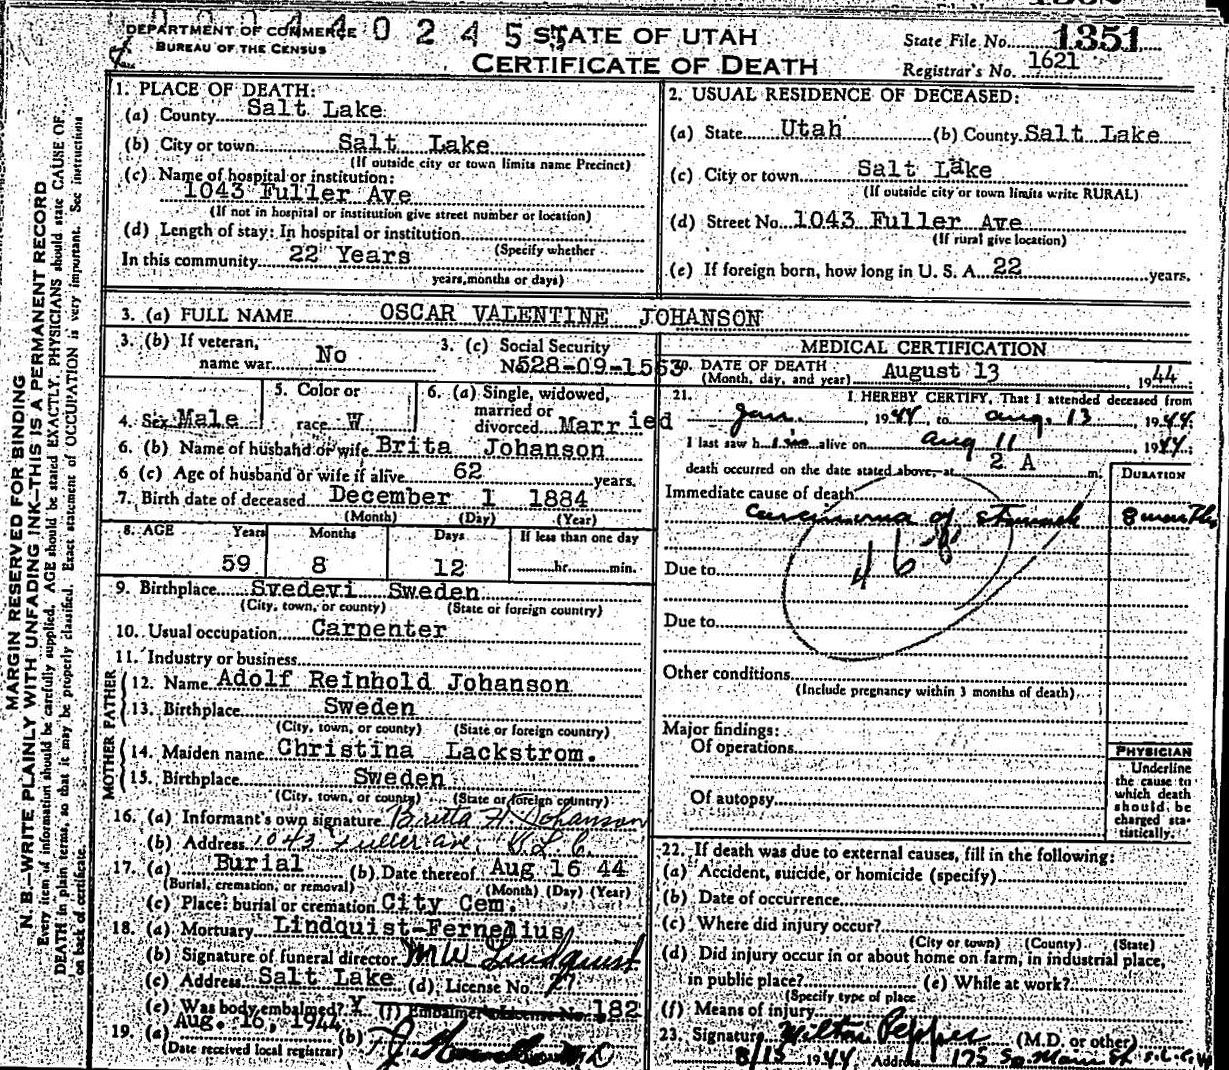 DEPARTMENT OF COMMERCE
BUREAU OF THE CENSUS
0 0 0 4 4 0 2 4 5
STATE OF UTAH
CERTIFICATE OF DEATH
State File No. 1351
Registrar's No. 1621
MARGIN RESERVED FOR BINDING
N. B.—WRITE PLAINLY WITH UNFADING INK—THIS IS A PERMANENT RECORD
Every item of information should be carefully supplied. AGE should be stated EXACTLY. PHYSICIANS should state CAUSE OF
DEATH in plain terms, so that it may be properly classified. Exact statement of OCCUPATION is very important. See instructions
on back of certificate.
1. PLACE OF DEATH:
(a) County Salt Lake
(b) City or town Salt Lake
(If outside city or town limits name Precinct)
(c) Name of hospital or institution:
1043 Fuller Ave
(If not in hospital or institution give street number or location)
(d) Length of stay: In hospital or institution
(Specify whether
In this community 22 Years
years, months or days)
2. USUAL RESIDENCE OF DECEASED:
(a) State Utah (b) County Salt Lake
(c) City or town Salt Lake
(If outside city or town limits write RURAL)
(d) Street No. 1043 Fuller Ave
(If rural give location)
(e) If foreign born, how long in U. S. A. 22 years.
3. (a) FULL NAME OSCAR VALENTINE JOHANSON
3. (b) If veteran, name war No
3. (c) Social Security
No 528-09-1563
4. Sex Male
5. Color or race W
6. (a) Single, widowed, married or divorced Married
6. (b) Name of husband or wife Brita Johanson
6 (c) Age of husband or wife if alive 62 years.
7. Birth date of deceased December 1 1884
(Month) (Day) (Year)
8. AGE Years Months Days If less than one day
59 8 12 hr. min.
9. Birthplace Svedevi Sweden
(City, town, or county) (State or foreign country)
10. Usual occupation Carpenter
11. Industry or business
FATHER
12. Name Adolf Reinhold Johanson
13. Birthplace Sweden
(City, town, or county) (State or foreign country)
MOTHER
14. Maiden name Christina Lackstrom.
15. Birthplace Sweden
(City, town, or county) (State or foreign country)
16. (a) Informant's own signature Britta H Johanson
(b) Address 1043 Fuller ave. S L C.
17. (a) Burial (b) Date thereof Aug 16 44
(Burial, cremation, or removal) (Month) (Day) (Year)
(c) Place: burial or cremation City Cem.
18. (a) Mortuary Lindquist-Fernelius
(b) Signature of funeral director MW Lindquist
(c) Address Salt Lake (d) License No.
(e) Was body embalmed? Y (f) Embalmer's License No. 182
19. (a) Aug. 16, 1944 (b)
(Date received local registrar)
MEDICAL CERTIFICATION
20. DATE OF DEATH
(Month, day, and year) August 13 1944
21. I HEREBY CERTIFY, That I attended deceased from
Jan. 1944, to Aug. 13 1944
I last saw him alive on Aug 11 1944
death occurred on the date stated above, at 2 A m.
DURATION
Immediate cause of death
carcinoma of stomach 8 months
46
Due to
Due to
Other conditions
(Include pregnancy within 3 months of death)
Major findings:
Of operations
Of autopsy
PHYSICIAN
Underline
the cause to
which death
should be
charged sta-
tistically.
22. If death was due to external causes, fill in the following:
(a) Accident, suicide, or homicide (specify)
(b) Date of occurrence
(c) Where did injury occur?
(City or town) (County) (State)
(d) Did injury occur in or about home on farm, in industrial place,
in public place? (e) While at work?
(Specify type of place
(f) Means of injury
23. Signature Wilton Pepper (M.D. or other)
8/15 1944 Address 175 So. Main St. S.L.C.